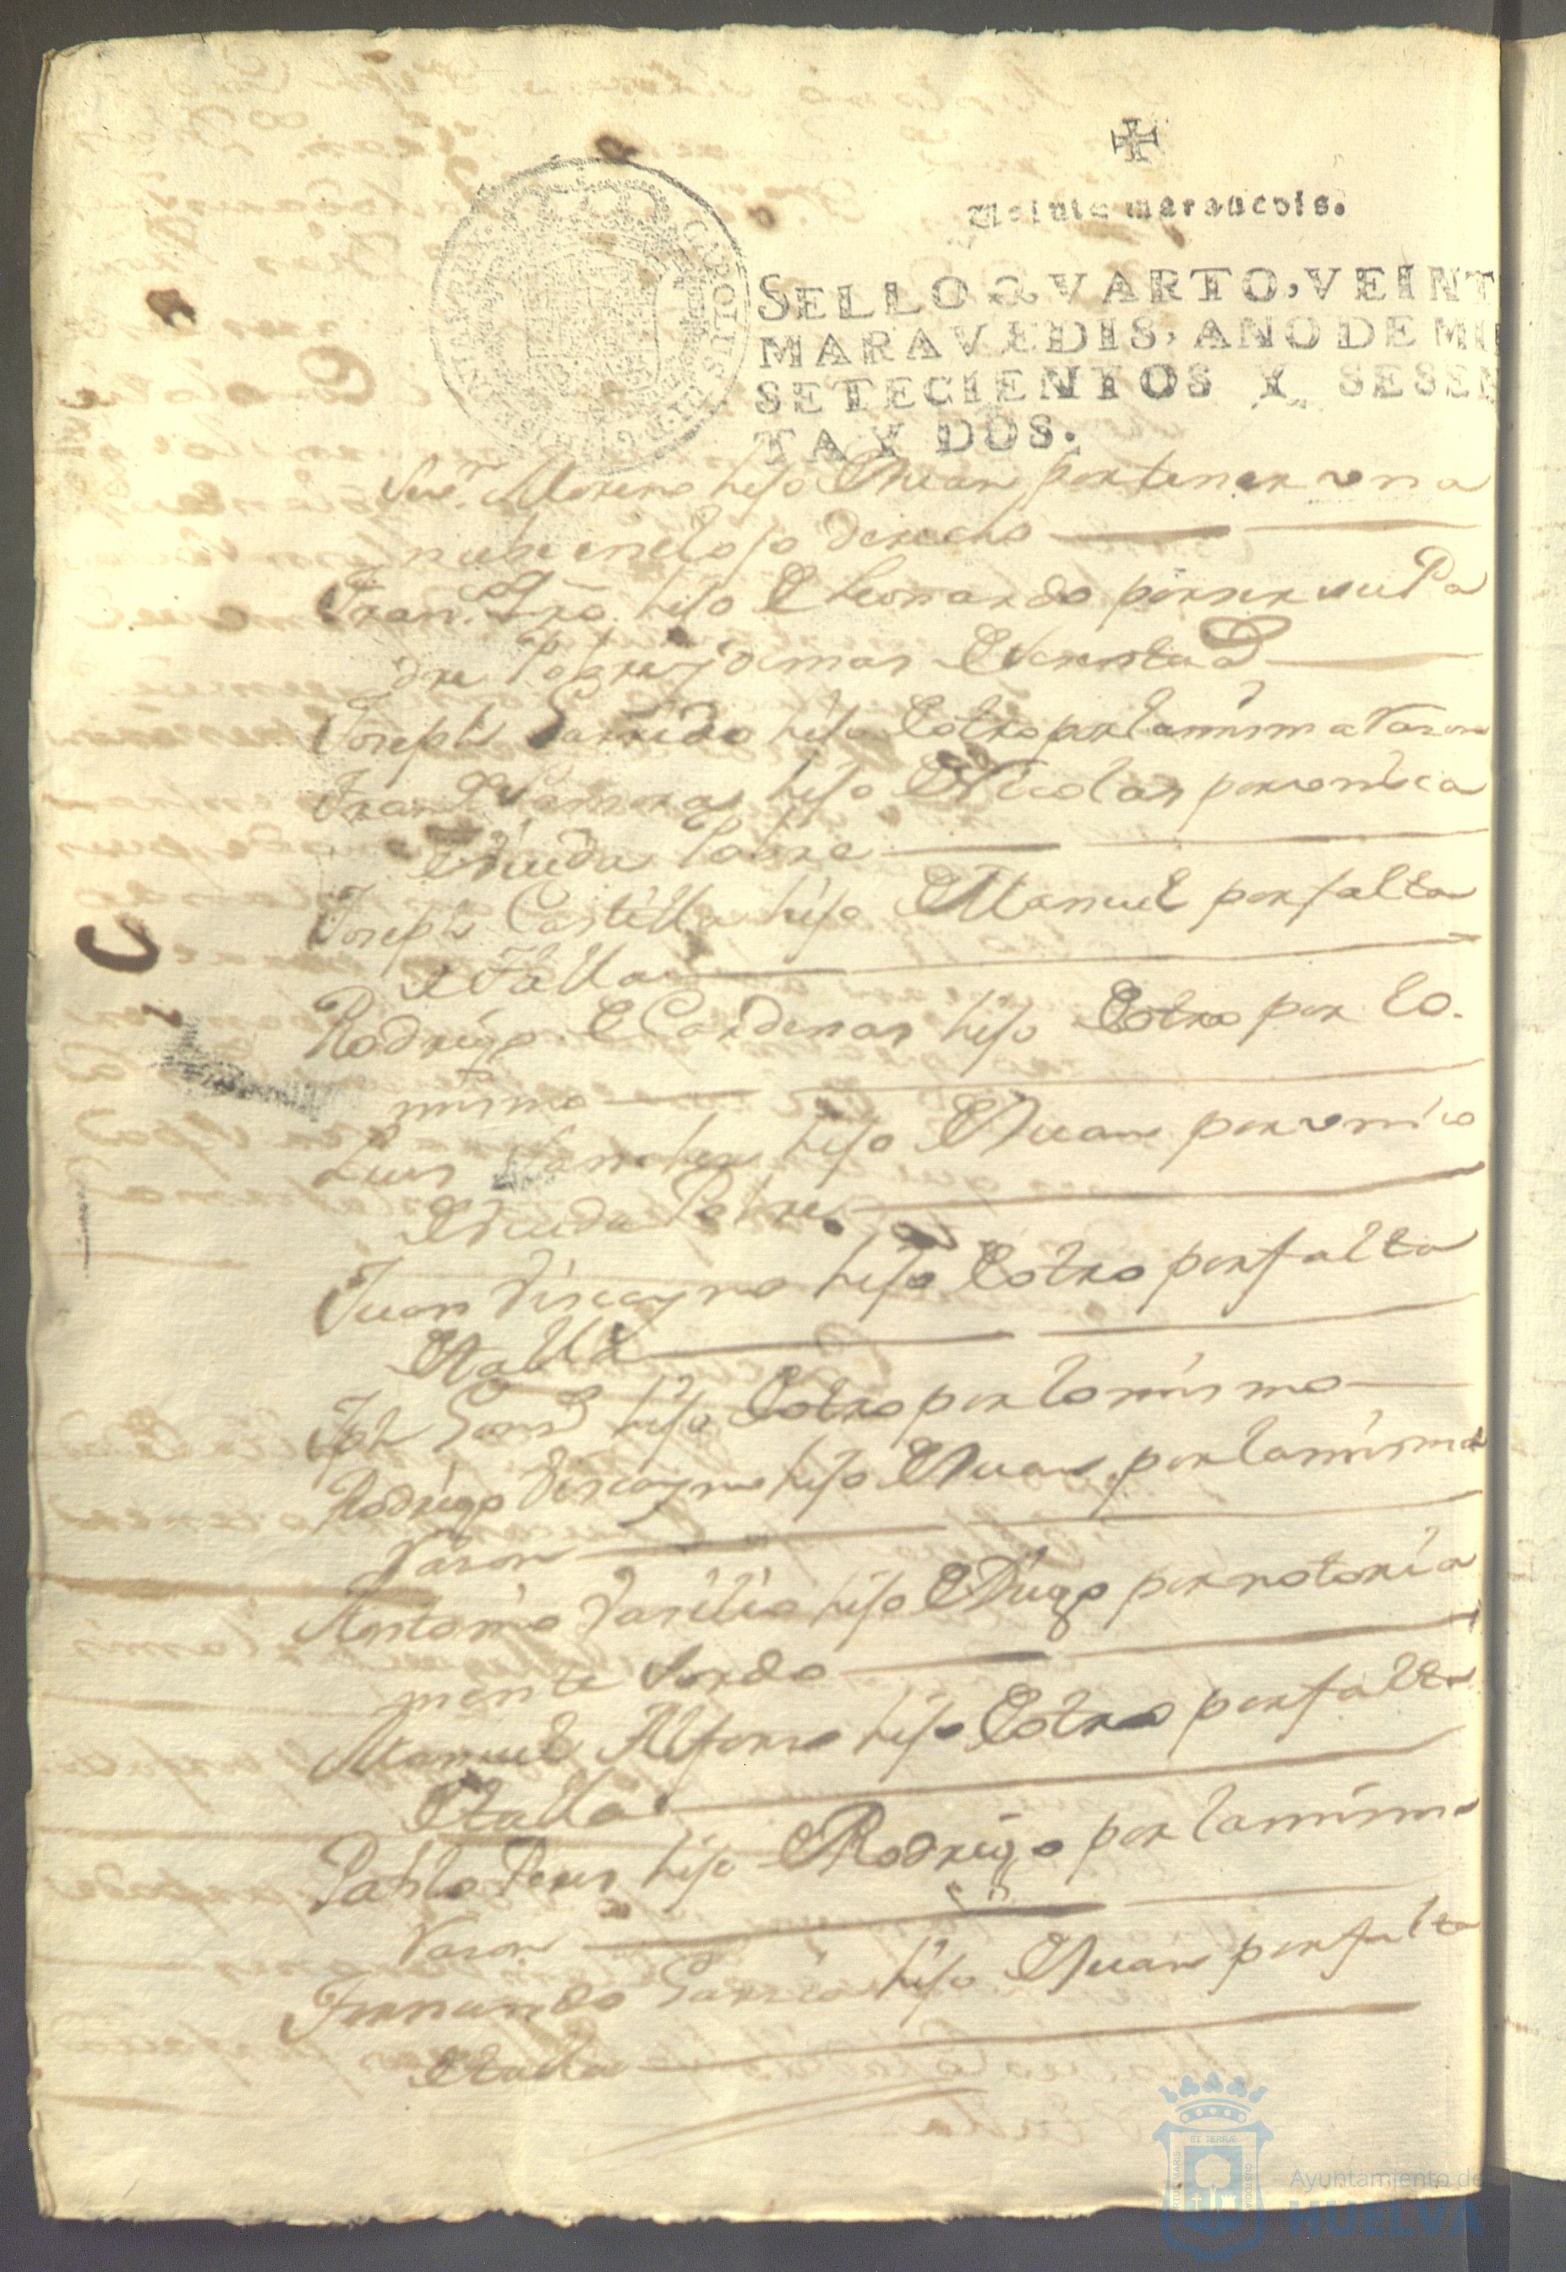 Veinte marauedis.
SELLO QVARTO, VEINT
MARAVEDIS, AÑO DE MIL
SETECIENTOS Y SESEN
TA Y DOS.
Moreno hijo de Juan por tener una
nube en el ojo derecho
Fran.co hijo de Leonardo por ser su Pa
dre Pobre y de mas de sesenta
Joseph Garrido hijo de otro por la misma Rason
Fran.co Zamora hijo de Nicolas por unico
de Viuda Pobre
Joseph Castilla hijo de Manuel por falta
de talla
Rodrigo de Cardenas hijo de otro por lo
mismo
Luis Sanches hijo de Juan por unico
de Viuda Pobre
Juan Viscayno hijo de otro por falta
de talla
Jph hijo de otro por lo mismo
Rodrigo Viscayno hijo de Juan por la misma
Rason
Antonio Vasilio hijo de Diego por notoria
mente sordo
Manuel Alfonso hijo de otro por falta
de talla
Pablo Peres hijo de Rodrigo por la misma
Rason
Fernando Garcia hijo de Juan por falta
de talla
Ayuntamiento de
HUELVA